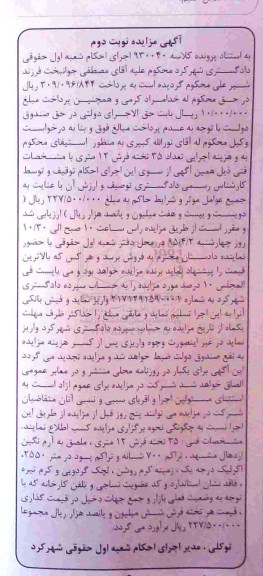 آگهی مزایده نوبت دوم
به استناد پرونده کلاسه ۹۳۰۰۴۰ اجرای احکام شعبه اول حقوقی
دادگستری شهرکرد محکوم علیه آقای مصطفی جوانبخت فرزند
شیر علی محکوم گردیده است به پرداخت ۳۰۹/۰۹۶/۸۴۴ ریال
در حق محکوم له خدامراد کرمی و همچنین پرداخت مبلغ
۱۰/۰۰۰/۰۰۰ ریال بابت حق الاجرای دولتی در حق صندوق
دولت با توجه به عدم پرداخت مبالغ فوق و بنا به درخواست
وکیل محکوم له آقای نورالله کبیری به منظور استیفای محکوم
به و هزینه اجرایی تعداد ۳۵ تخته فرش ۱۲ متری با مشخصات
فنی ذیل همین آگهی از سوی این اجرای احکام توقیف و توسط
کارشناس رسمی دادگستری توصیف و ارزش آن با عنایت به
جمیع عوامل موثر و شرایط حاکم به مبلغ ۲۲۷/۵۰۰/۰۰۰ ریال (
دویست و بیست و هفت میلیون و پانصد هزار ریال ) ارزیابی شد
و مقرر است از طریق مزایده راس ساعت ۱۰ صبح الی ۱۰/۳۰
روز چهارشنبه ۹۵/۴/۲ در محل دفتر شعبه اول حقوقی با حضور
نماینده دادستان محترم به فروش برسد و هر کس که بالاترین
قیمت را پیشنهاد نماید برنده مزایده خواهد بود و می بایست فی
المجلس ۱۰ درصد مورد مزایده را به حساب سپرده دادگستری
شهرکرد به شماره واریز نماید و فیش بانکی
آنرا به این اجرا تسلیم نماید و مابقی مبلغ را حداکثر ظرف مهلت
یکماه از تاریخ مزایده به حساب سپرده دادگستری شهرکرد واریز
نماید در غیر اینصورت وجوه واریزی پس از کسر هزینه مزایده
به نفع صندوق دولت ضبط خواهد شد و مزایده تجدید می گردد
این آگهی برای یکبار در روزنامه محلی منتشر و در معابر عمومی
الصاق خواهد شد شرکت در مزایده برای عموم آزاد است به
استثنای مسئولین اجرا و اقربای سببی و نسبی آنان متقاضیان
شرکت در مزایده می توانند پنج روز قبل از مزایده از طریق این
اجرا نسبت به چگونگی نحوه برگزاری مزایده کسب اطلاع نمایند.
مشخصات فنی : ۳۵ تخته فرش ۱۲ متری ، ملصق به آرم نگین
اردهال مشهد ، تراکم ۷۰۰ شانه و تراکم پود در متر ۲۵۵۰،
اکرلیک درجه یک ، زمینه کرم روشن ، لچک گردویی و کرم تیره
، فاقد نشان استاندارد و کد عضویت نساجی و تلفن کارخانه که با
توجه به وضعیت فعلی بازار و جمع جهات دخیل در قیمت گذاری
، قیمت هر تخته فرش شش میلیون و پانصد هزار ریال مجموعا
۲۲۷/۵۰۰/۰۰۰ ریال برآورد می گردد.
توکلی ، مدیر اجرای احکام شعبه اول حقوقی شهرکرد